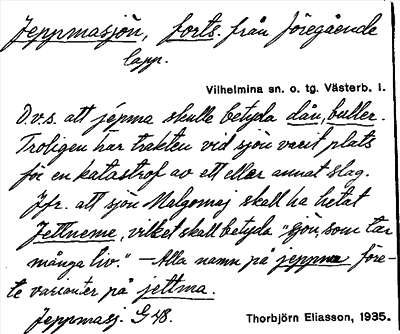 Jeppmasjön, forts. från föregående
lapp.
Vilhelmina sn. o. tg. Västerb. l.
D.v.s. att jépma skulle betyda dån, buller.
Troligen har trakten vid sjön varit plats
för en katastrof av ett eller annat slag.
Jfr. att sjön Malgomaj skall ha hetat
Jettneme, vilket skall betyda "sjön, som tar
många liv." — Alla namn på jeppma före-
te varianter på jettma.
Jeppmasj. G 48.
Thorbjörn Eliasson, 1935.